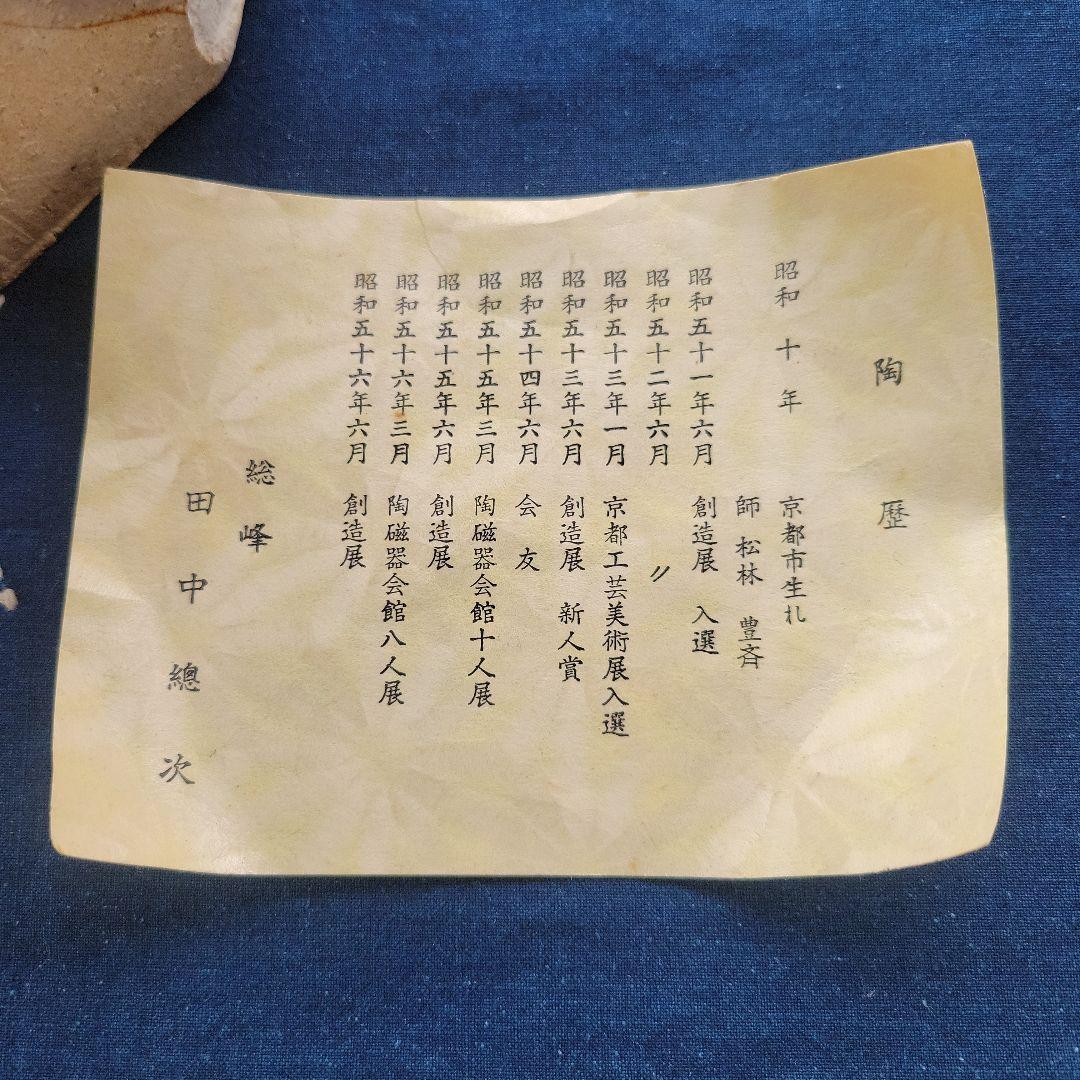 陶歴
昭和十年 京都市生れ
師 松林 豊斉
昭和五十一年六月 創造展 入選
昭和五十二年六月 〃
昭和五十三年一月 京都工芸美術展入選
昭和五十三年六月 創造展 新人賞
昭和五十四年六月 会友
昭和五十五年三月 陶磁器会館十人展
昭和五十五年六月 創造展
昭和五十六年三月 陶磁器会館八人展
昭和五十六年六月 創造展
総峰
田中總次